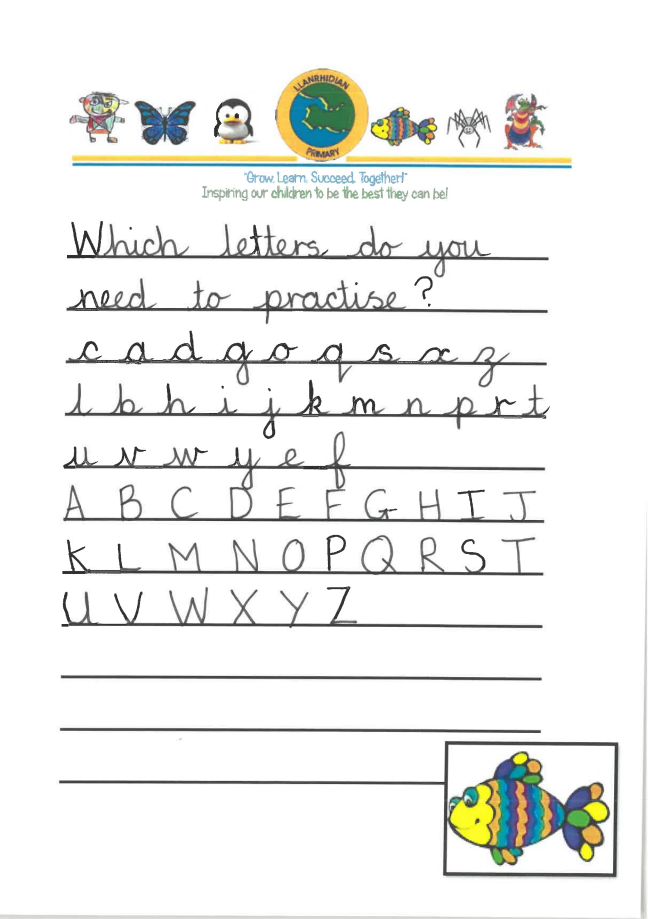 LLANRHIDIAN
PRIMARY
"Grow. Learn. Succeed. Together!"
Inspiring our children to be the best they can be!
Which letters do you
need to practise?
c a d g o q s x z
l b h i j k m n p r t
u v w y e f
A B C D E F G H I J
K L M N O P Q R S T
U V W X Y Z